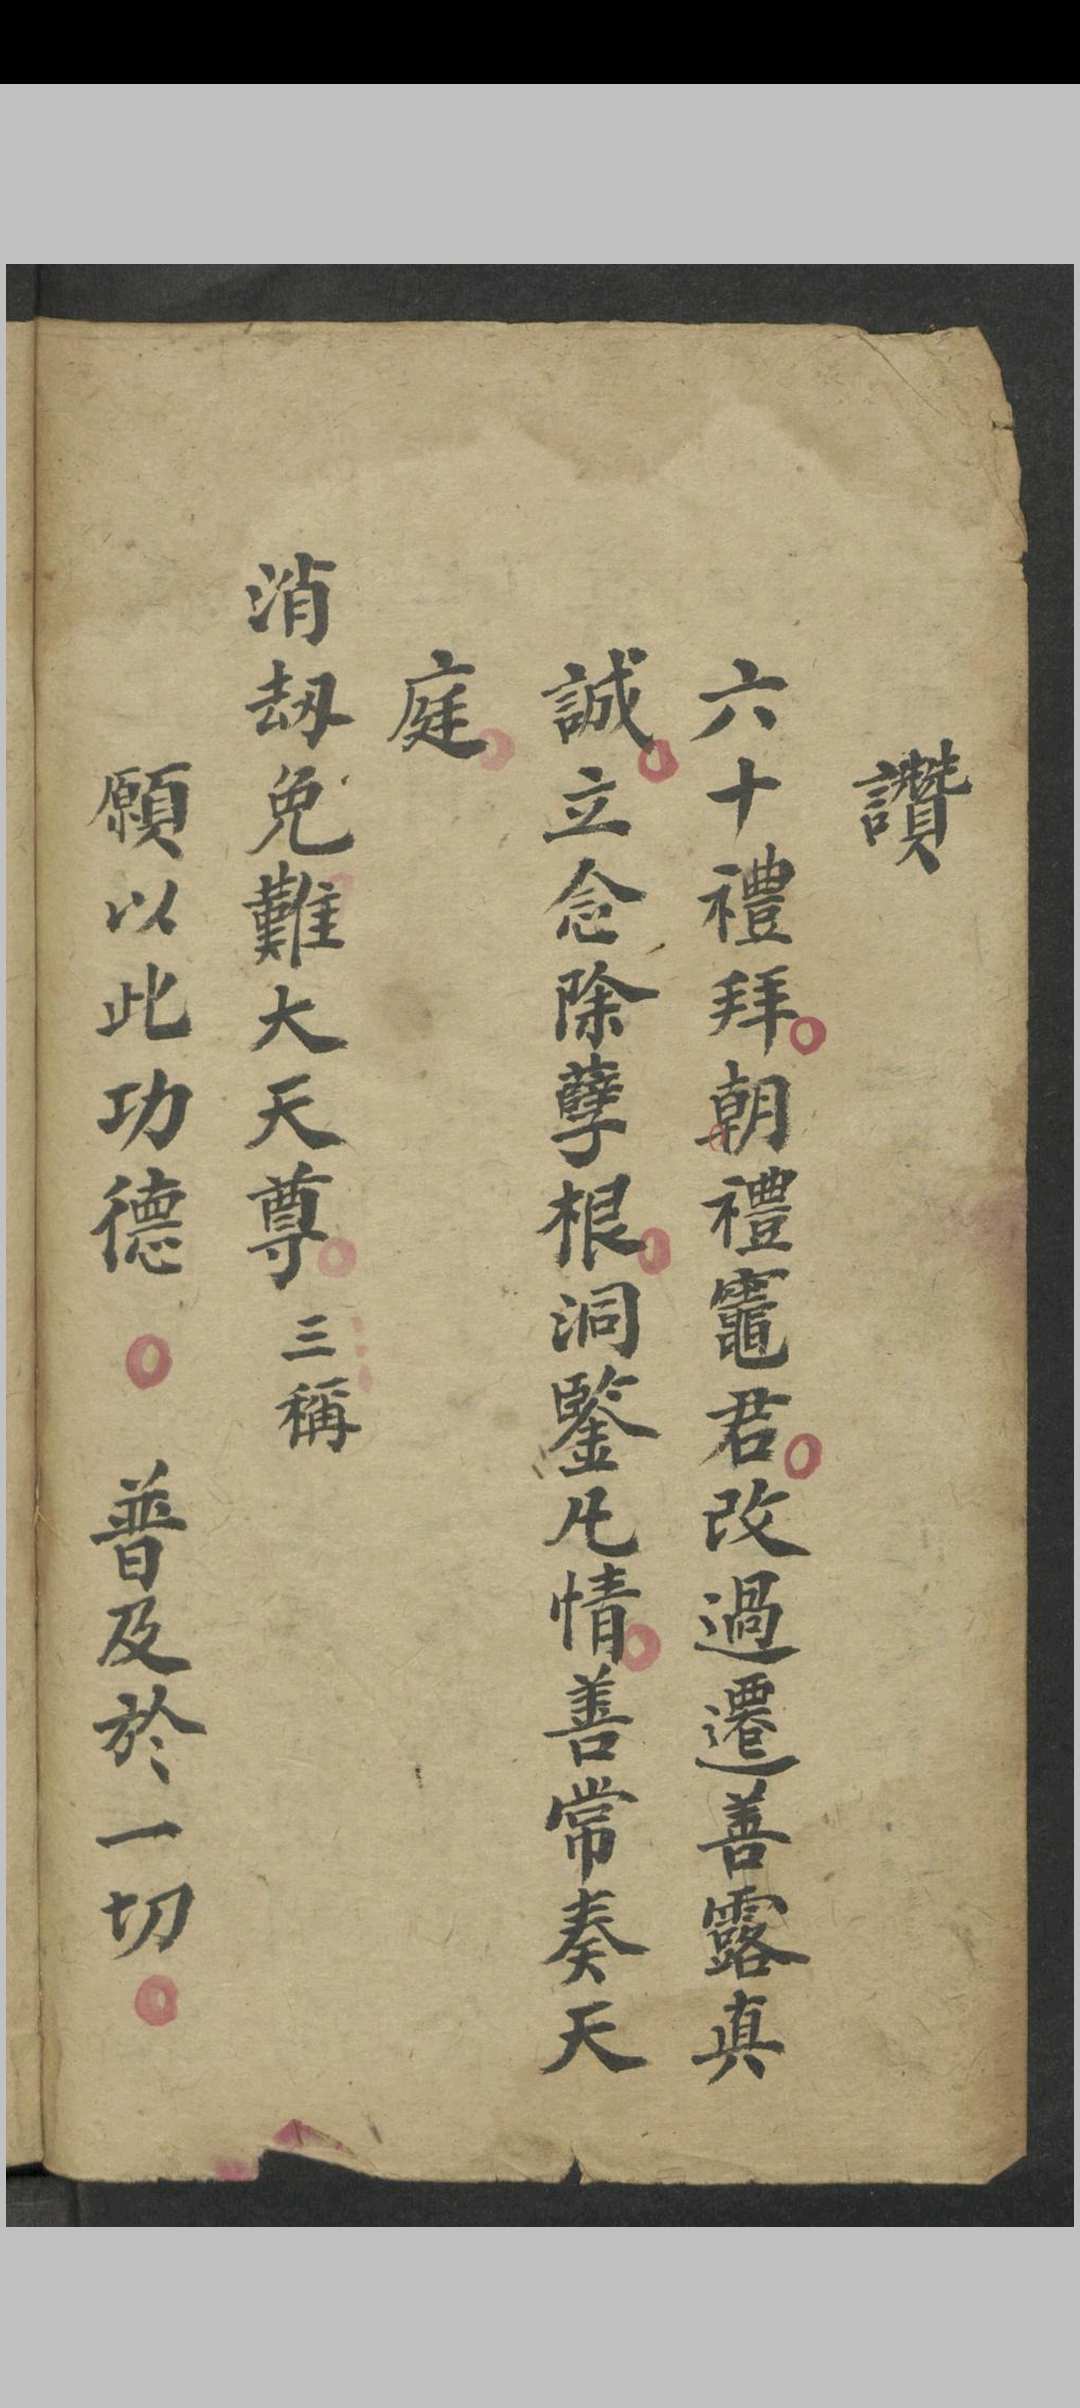 讚
六十禮拜朝禮竈君改過遷善露真
誠立念除孽根洞鑒凡情善常奏天
庭
消刼免難大天尊三稱
願以此功德 普及於一切